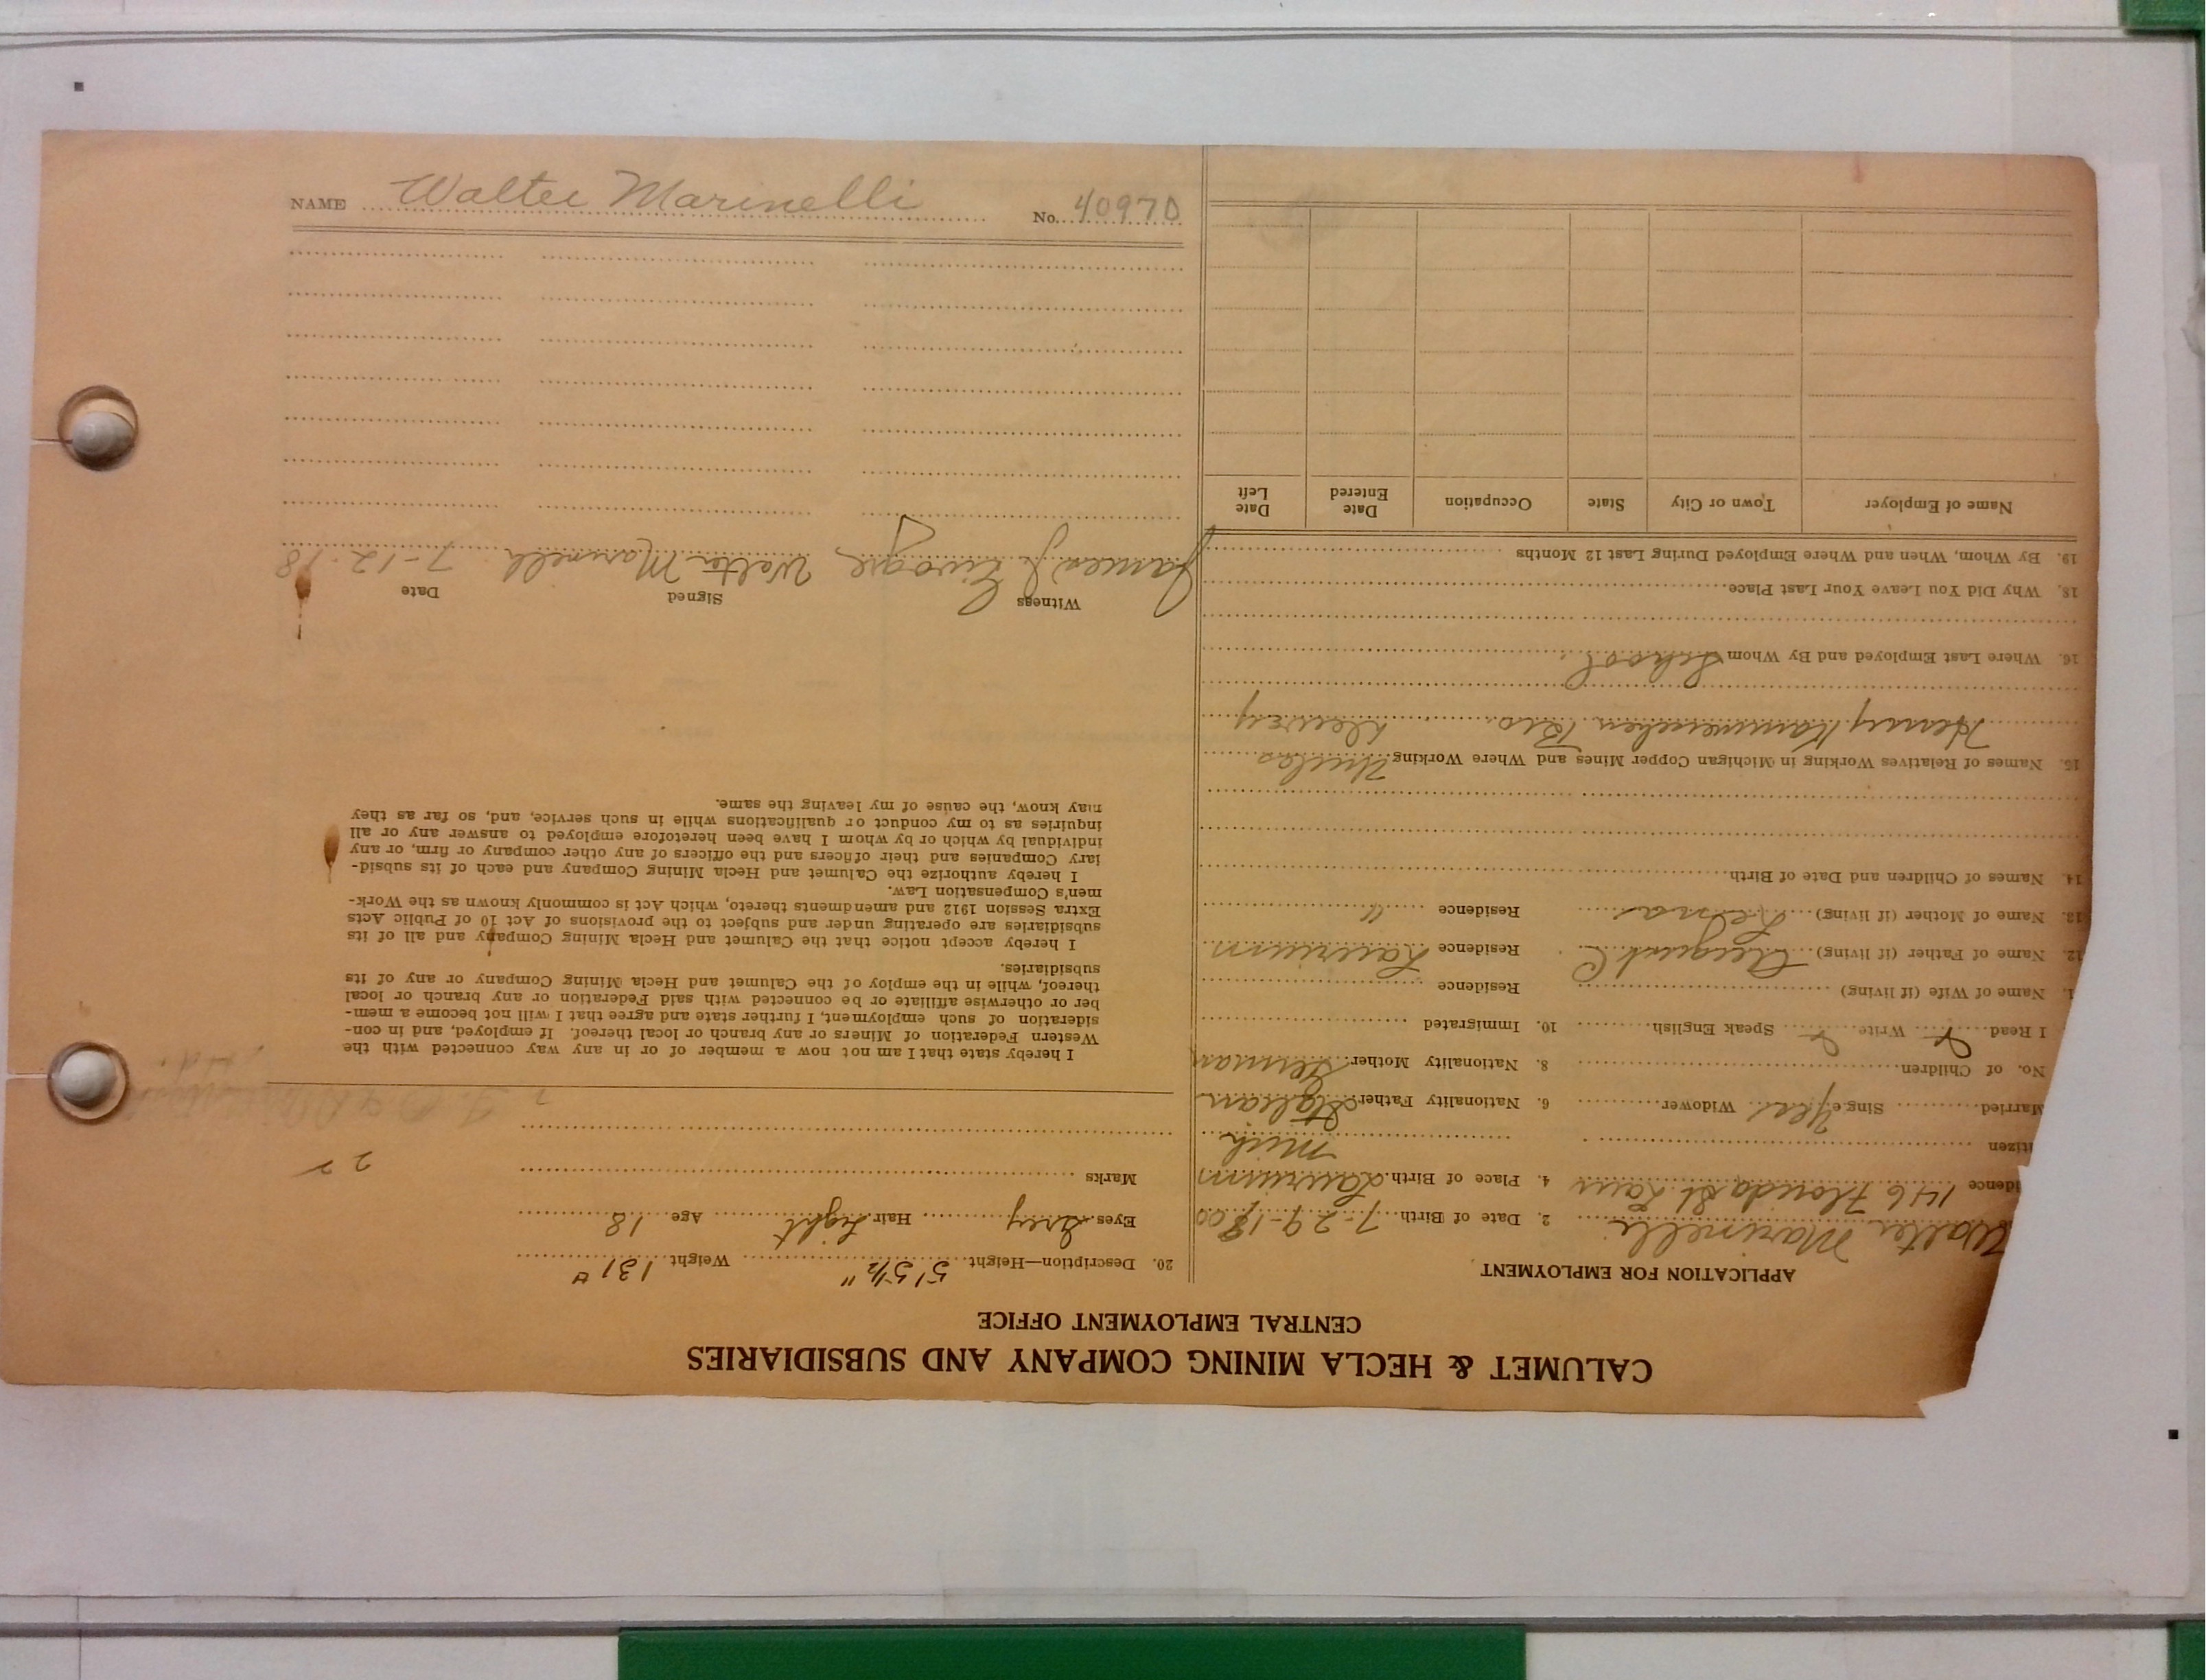 CALUMET & HECLA MINING COMPANY AND SUBSIDIARIES
CENTRAL EMPLOYMENT OFFICE
APPLICATION FOR EMPLOYMENT
Walter Marinelli 2. Date of Birth 7-29-1900
idence 146 Florida St Laur 4. Place of Birth Laurium
itizen Mich
Married Single Yes Widower 6. Nationality Father Italian
No. of Children 8. Nationality Mother German
I Read Write Speak English 10. Immigrated
1. Name of Wife (if living) Residence
12. Name of Father (if living) August C Residence Laurium
13. Name of Mother (if living) Lena Residence "
14. Names of Children and Date of Birth
15. Names of Relatives Working in Michigan Copper Mines and Where Working Uncles
Henry Bro.
16. Where Last Employed and By Whom School
18. Why Did You Leave Your Last Place
19. By Whom, When and Where Employed During Last 12 Months
Name of Employer Town or City State Occupation Date Entered Date Left
20. Description—Height 5'5½" Weight 131#
Eyes Grey Hair Light Age 18
Marks
22
I hereby state that I am not now a member of or in any way connected with the
Western Federation of Miners or any branch or local thereof. If employed, and in con-
sideration of such employment, I further state and agree that I will not become a mem-
ber or otherwise affiliate or be connected with said Federation or any branch or local
thereof, while in the employ of the Calumet and Hecla Mining Company or any of its
subsidiaries.
I hereby accept notice that the Calumet and Hecla Mining Company and all of its
subsidiaries are operating under and subject to the provisions of Act 10 of Public Acts
Extra Session 1912 and amendments thereto, which Act is commonly known as the Work-
men's Compensation Law.
I hereby authorize the Calumet and Hecla Mining Company and each of its subsid-
iary Companies and their officers and the officers of any other company or firm, or any
individual by which or by whom I have been heretofore employed to answer any or all
inquiries as to my conduct or qualifications while in such service, and, so far as they
may know, the cause of my leaving the same.
Witness Signed Date
James J. Walter Marinelli 7-12-18
NAME Walter Marinelli No. 40970